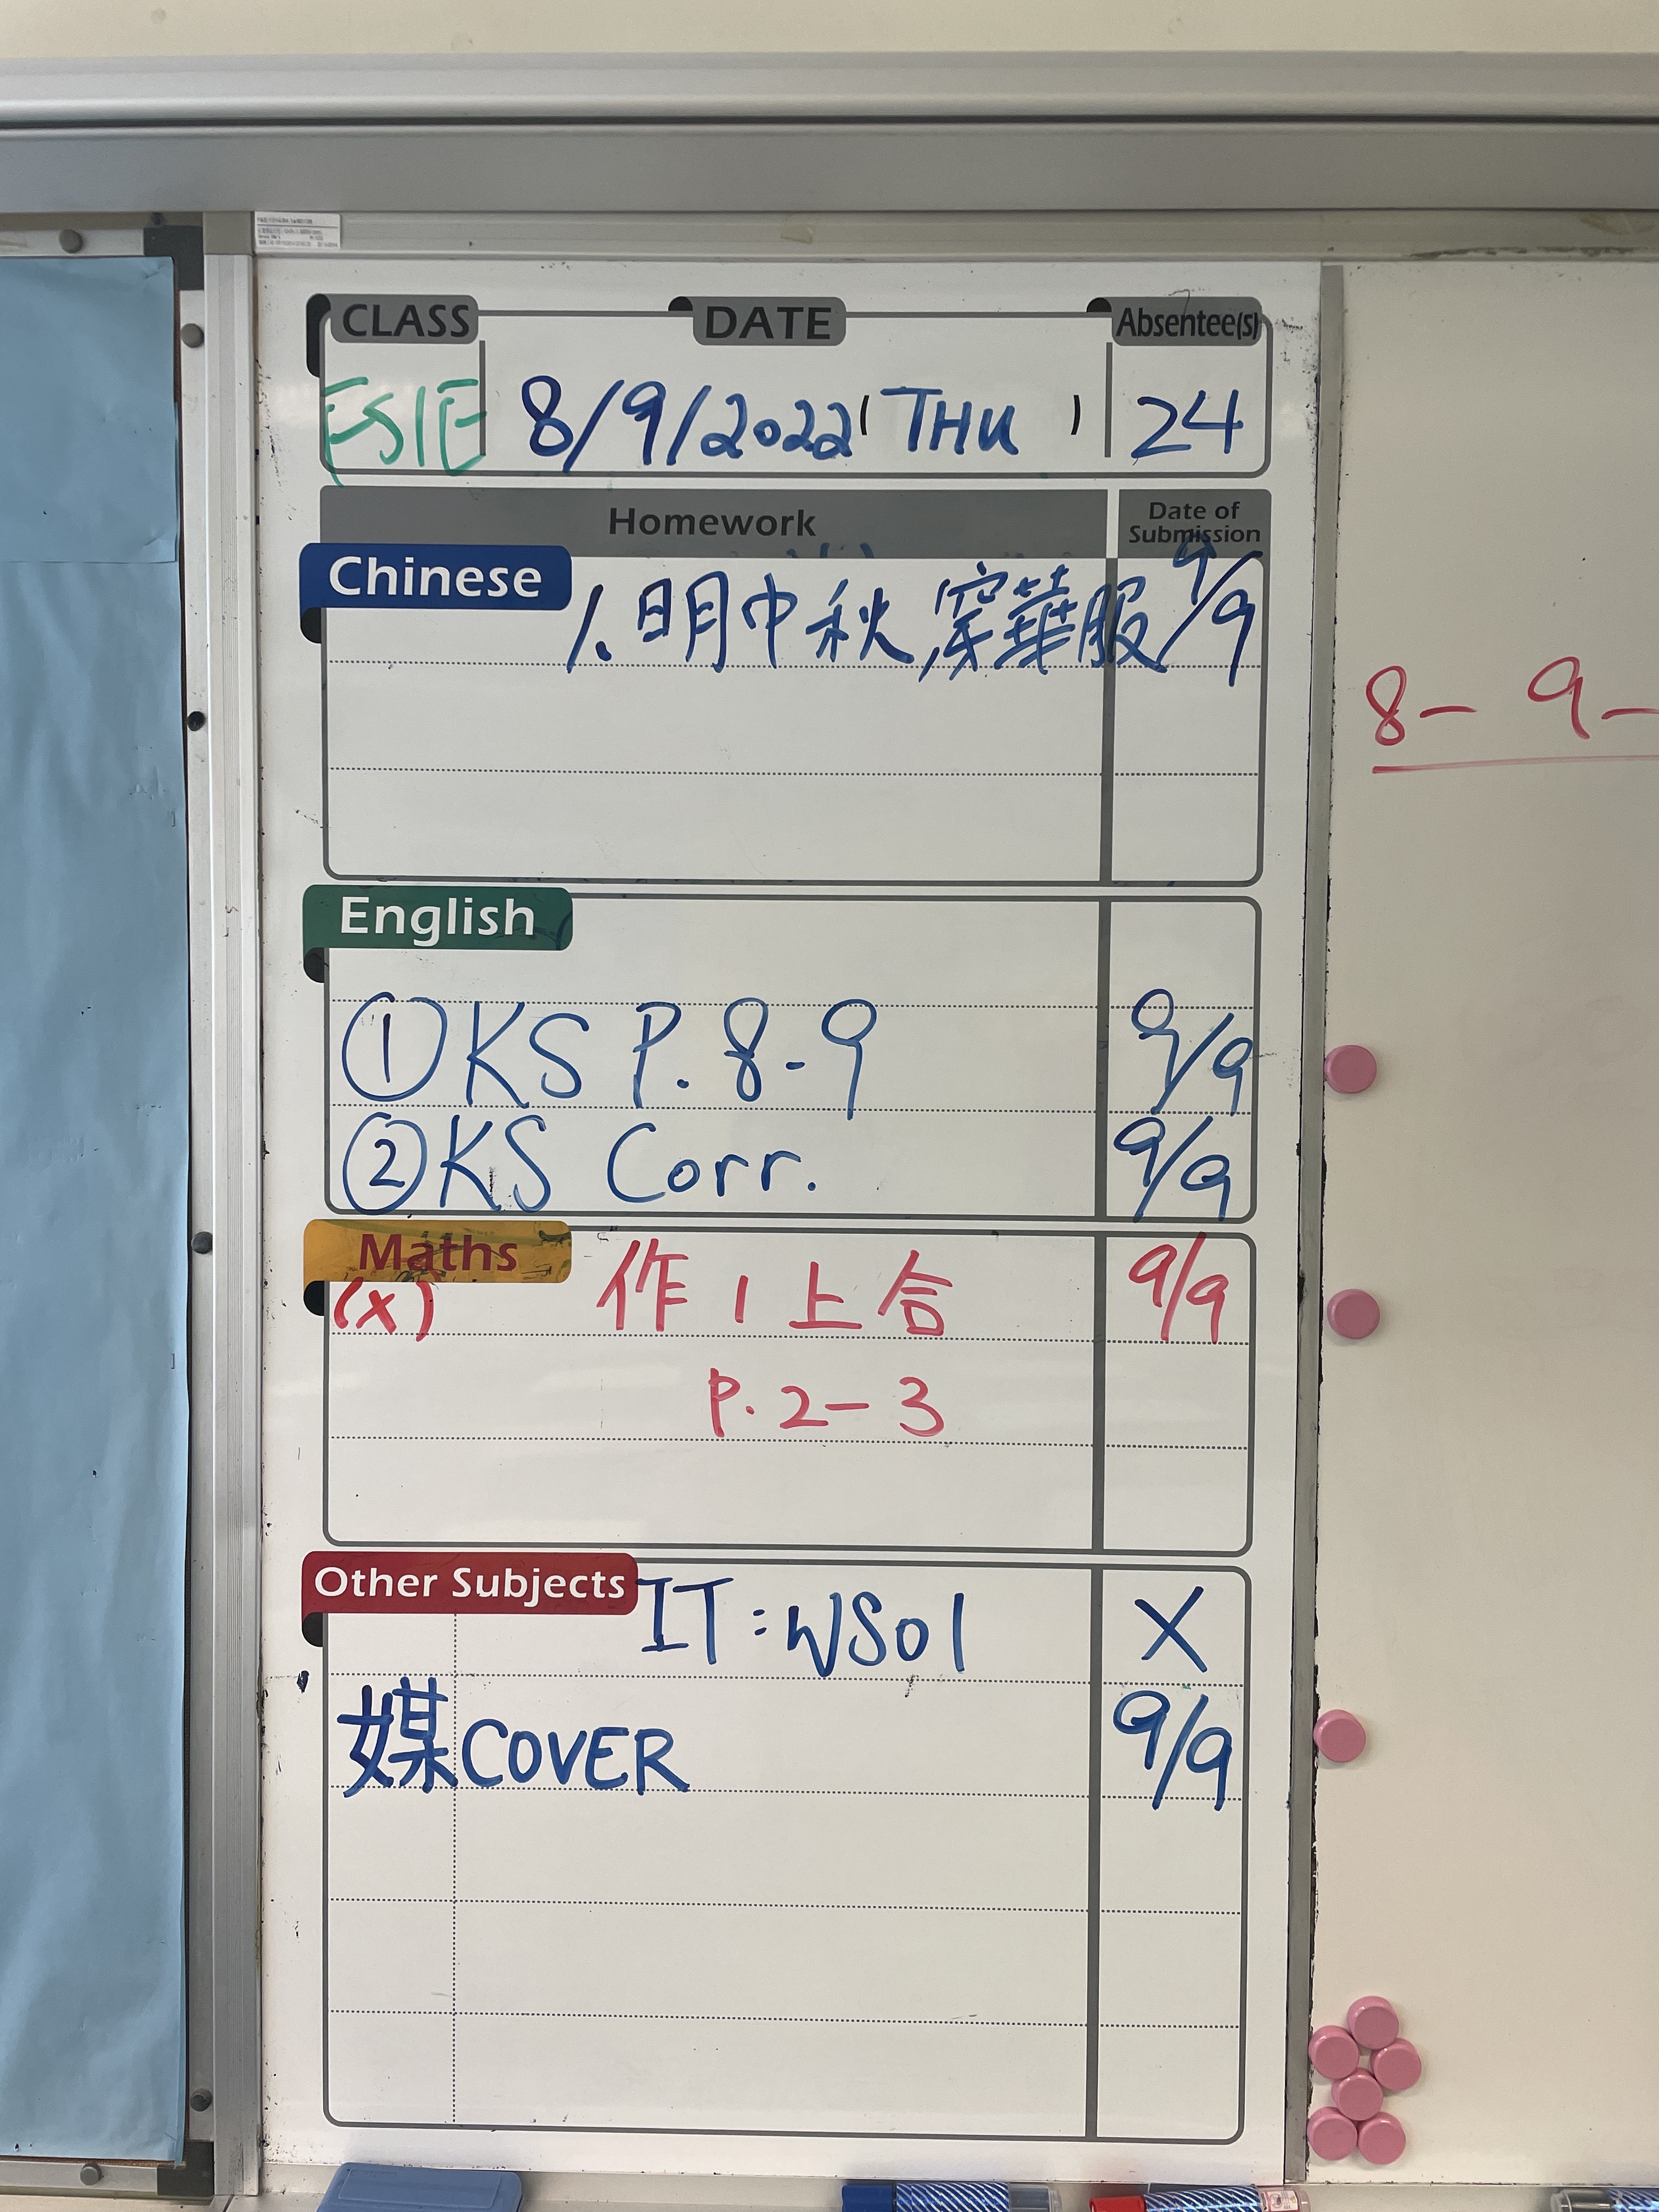 CLASS DATE Absentee(s)
8/9/2022 (THU ) 24
Homework Date of Submission
Chinese
1. 明中秋,穿華服 9/9
English
① KS P. 8-9 9/9
② KS Corr. 9/9
Maths
(x) 作1上合 9/9
P. 2-3
Other Subjects
IT: WS01 X
媒 COVER 9/9
8- 9-